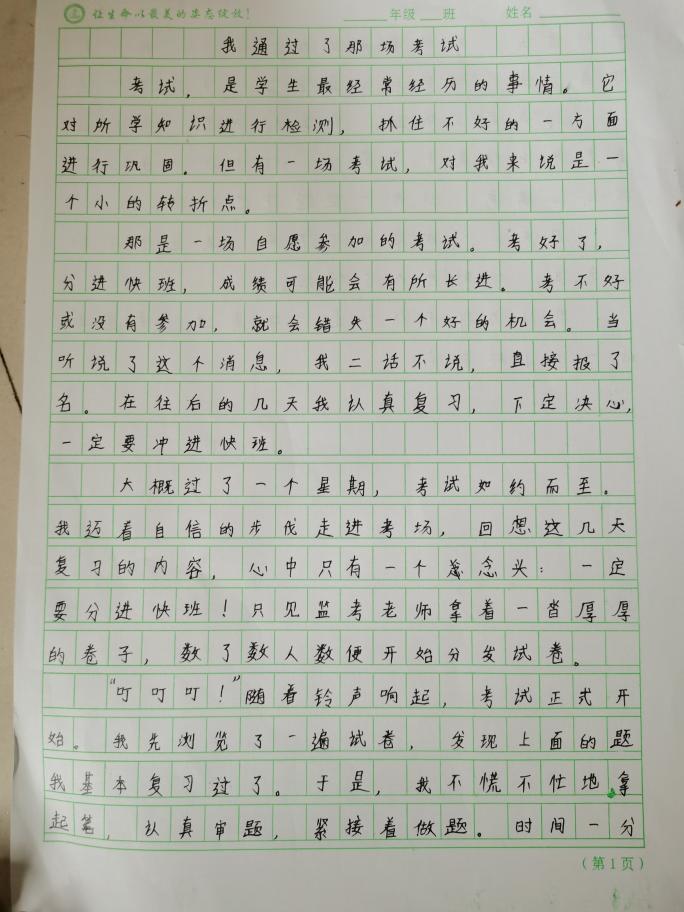 让生命以最美的姿态绽放！ 年级 班 姓名
我通过了那场考试
考试，是学生最经常经历的事情。它
对所学知识进行检测，抓住不好的一方面
进行巩固。但有一场考试，对我来说是一
个小的转折点。
那是一场自愿参加的考试。考好了，
分进快班，成绩可能会有所长进。考不好
或没有参加，就会错失一个好的机会。当
听说了这个消息，我二话不说，直接报了
名。在往后的几天我认真复习，下定决心，
一定要冲进快班。
大概过了一个星期，考试如约而至。
我迈着自信的步伐走进考场，回想这几天
复习的内容，心中只有一个念头：一定
要分进快班！只见监考老师拿着一沓厚厚
的卷子，数了数人数便开始分发试卷。
“叮叮叮！”随着铃声响起，考试正式开
始。我先浏览了一遍试卷，发现上面的题
我基本复习过了。于是，我不慌不忙地拿
起笔，认真审题，紧接着做题。时间一分
（第1页）